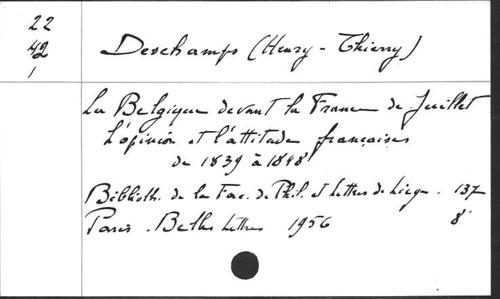 22
42
1
Deschamps (Henry-Thierry)
La Belgique devant la France de Juillet
L'opinion et l'attitude françaises
de 1839 à 1848
Biblioth. de la Fac. de Phil. et Lettres de Liège. 137
Paris. Belles Lettres 1956 8°